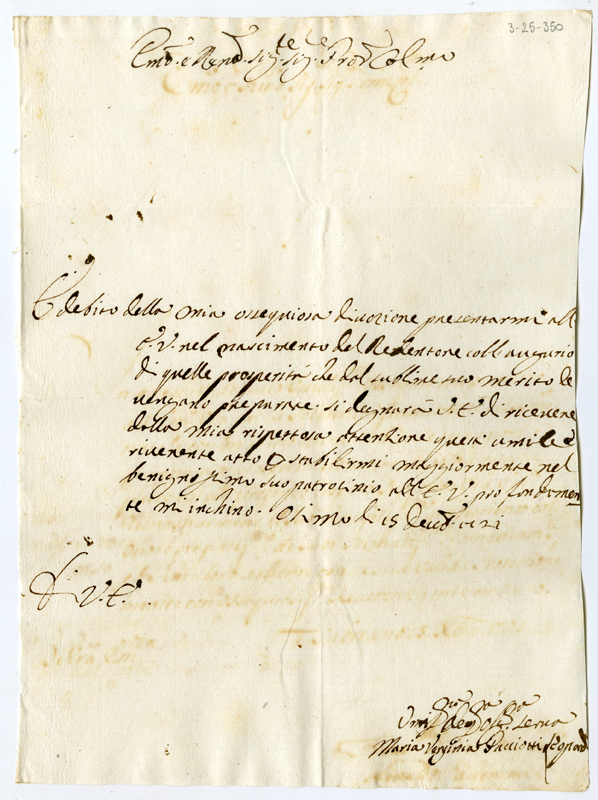 3-25-350
Em.o e Rev.mo Sig.re Sig.re Prõn Col.mo
È debito della mia ossequiosa divozione presentarmi all'
E. V. nel nascimento del Redentore coll'augurio
di quelle prosperità che dal sublime suo merito le
vengano preparate. si degnarà V. E. di ricevere
della mia rispettosa attenzione questo umile e
riverente atto p stabilirmi maggiormente nel
benignissimo suo patrocinio, all'E. V. profondamen
te mi inchino. Osimo di 15 Decẽb.
D V. E.
Um.ma Dev.ma Obl.ma serva
Maria Verginia Pacciotti